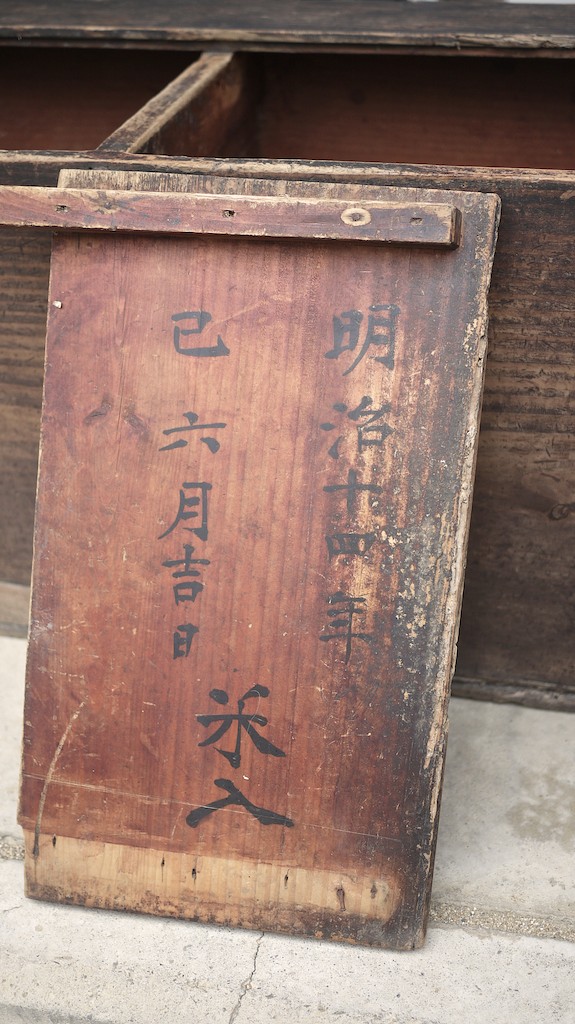 明治十四年
己六月吉日
米入